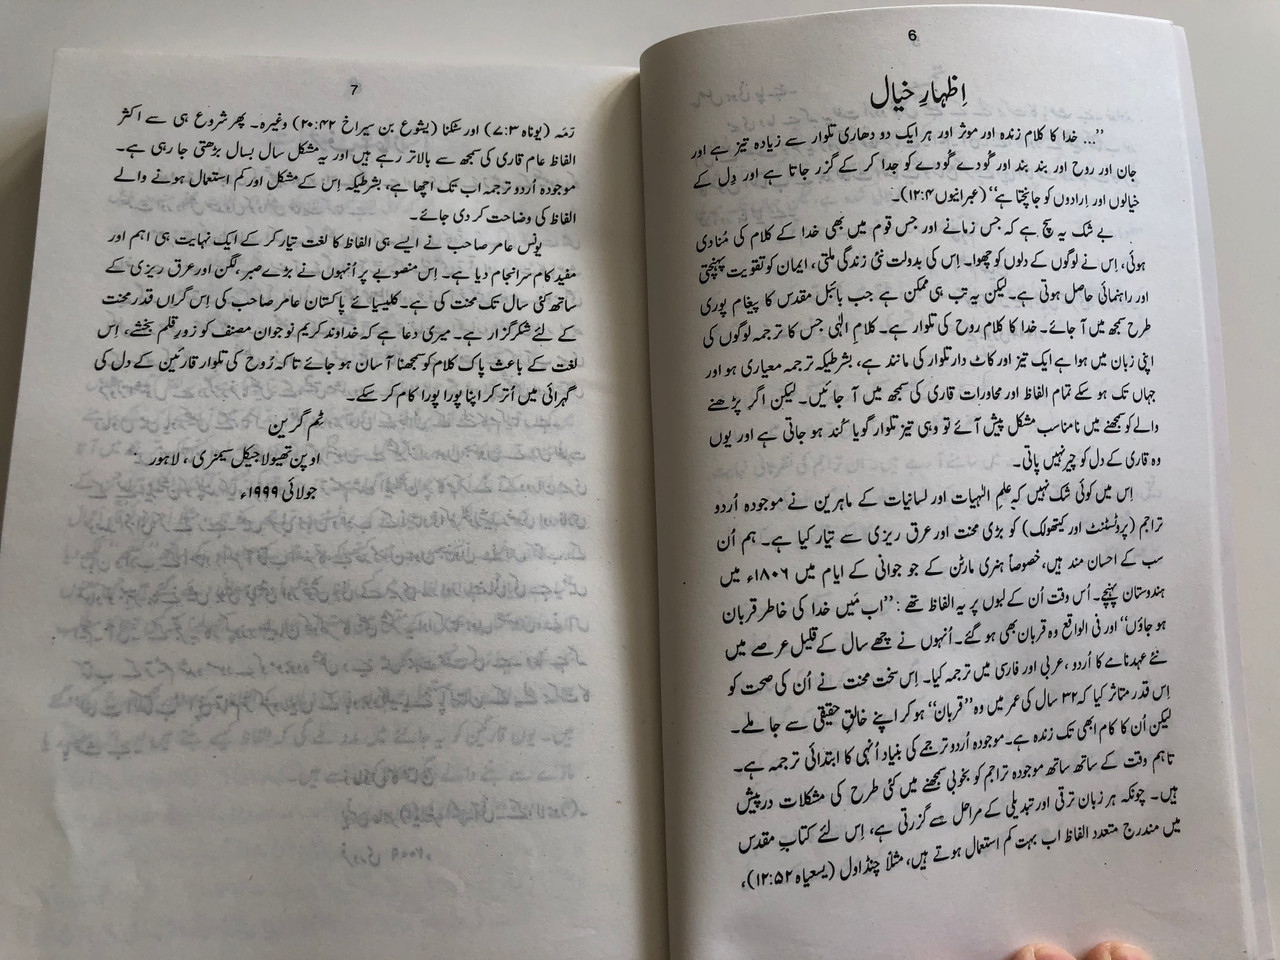 6
اِظہارِ خیال
”... خدا کا کلام زندہ اور موثر اور ہر ایک دو دھاری تلوار سے زیادہ تیز ہے اور
جان اور روح اور بند بند اور گُودے گُودے کو جدا کر کے گزر جاتا ہے اور دِل کے
خیالوں اور اِرادوں کو جانچتا ہے“ (عبرانیوں ۱۲:۴)۔
بے شک یہ سچ ہے کہ جس زمانے اور جس قوم میں بھی خدا کے کلام کی مُنادی
ہوئی، اِس نے لوگوں کے دلوں کو چھوا۔ اِس کی بدولت نئی زندگی ملتی، ایمان کو تقویت پہنچتی
اور راہنمائی حاصل ہوتی ہے۔ لیکن یہ تب ہی ممکن ہے جب بائبل مقدس کا پیغام پوری
طرح سمجھ میں آ جائے۔ خدا کا کلام روح کی تلوار ہے۔ کلامِ الٰہی جس کا ترجمہ لوگوں کی
اپنی زبان میں ہوا ہے ایک تیز اور کاٹ دار تلوار کی مانند ہے، بشرطیکہ ترجمہ معیاری ہو اور
جہاں تک ہو سکے تمام الفاظ اور محاورات قاری کی سمجھ میں آ جائیں۔ لیکن اگر پڑھنے
والے کو سمجھنے میں نامناسب مشکل پیش آئے تو وہی تیز تلوار گویا کُند ہو جاتی ہے اور یوں
وہ قاری کے دل کو چیر نہیں پاتی۔
اِس میں کوئی شک نہیں کہ علمِ الٰہیات اور لسانیات کے ماہرین نے موجودہ اُردو
تراجم (پروٹسٹنٹ اور کیتھولک) کو بڑی محنت اور عرق ریزی سے تیار کیا ہے۔ ہم اُن
سب کے احسان مند ہیں، خصوصاً ہنری مارٹن کے جو جوانی کے ایام میں ۱۸۰۶ء میں
ہندوستان پہنچے۔ اُس وقت اُن کے لبوں پر یہ الفاظ تھے: ”اب مَیں خدا کی خاطر قربان
ہو جاؤں“ اور فی الواقع وہ قربان بھی ہو گئے۔ اُنہوں نے چھے سال کے قلیل عرصے میں
نئے عہدنامے کا اُردو، عربی اور فارسی میں ترجمہ کیا۔ اِس سخت محنت نے اُن کی صحت کو
اِس قدر متاثر کیا کہ ۳۲ سال کی عمر میں وہ ”قربان“ ہو کر اپنے خالقِ حقیقی سے جا ملے۔
لیکن اُن کا کام ابھی تک زندہ ہے۔ موجودہ اُردو ترجمے کی بنیاد اُنہی کا ابتدائی ترجمہ ہے۔
تاہم وقت کے ساتھ ساتھ موجودہ تراجم کو بخوبی سمجھنے میں کئی طرح کی مشکلات درپیش
ہیں۔ چونکہ ہر زبان ترقی اور تبدیلی کے مراحل سے گزرتی ہے، اِس لئے کتابِ مقدس
میں مندرج متعدد الفاظ اب بہت کم استعمال ہوتے ہیں، مثلاً چنڈاول (یسعیاہ ۱۲:۵۲)،
7
رَمَہ (یوناہ ۷:۳) اور سُکنا (یشوع بن سیراخ ۲۰:۴۲) وغیرہ۔ پھر شروع ہی سے اکثر
الفاظ عام قاری کی سمجھ سے بالاتر رہے ہیں اور یہ مشکل سال بسال بڑھتی جا رہی ہے۔
موجودہ اُردو ترجمہ اب تک اچھا ہے، بشرطیکہ اِس کے مشکل اور کم استعمال ہونے والے
الفاظ کی وضاحت کر دی جائے۔
یونس عامر صاحب نے ایسے ہی الفاظ کا لغت تیار کر کے ایک نہایت ہی اہم اور
مفید کام سرانجام دیا ہے۔ اِس منصوبے پر اُنہوں نے بڑے صبر، لگن اور عرق ریزی کے
ساتھ کئی سال تک محنت کی ہے۔ کلیسیائے پاکستان عامر صاحب کی اِس گراں قدر محنت
کے لئے شکرگزار ہے۔ میری دعا ہے کہ خداوند کریم نوجوان مصنف کو زورِ قلم بخشے، اِس
لغت کے باعث پاک کلام کو سمجھنا آسان ہو جائے تاکہ رُوح کی تلوار قارئین کے دل کی
گہرائی میں اُتر کر اپنا پورا پورا کام کر سکے۔
ٹم گرین
اوپن تھیولاجیکل سیمنری، لاہور
جولائی ۱۹۹۹ء